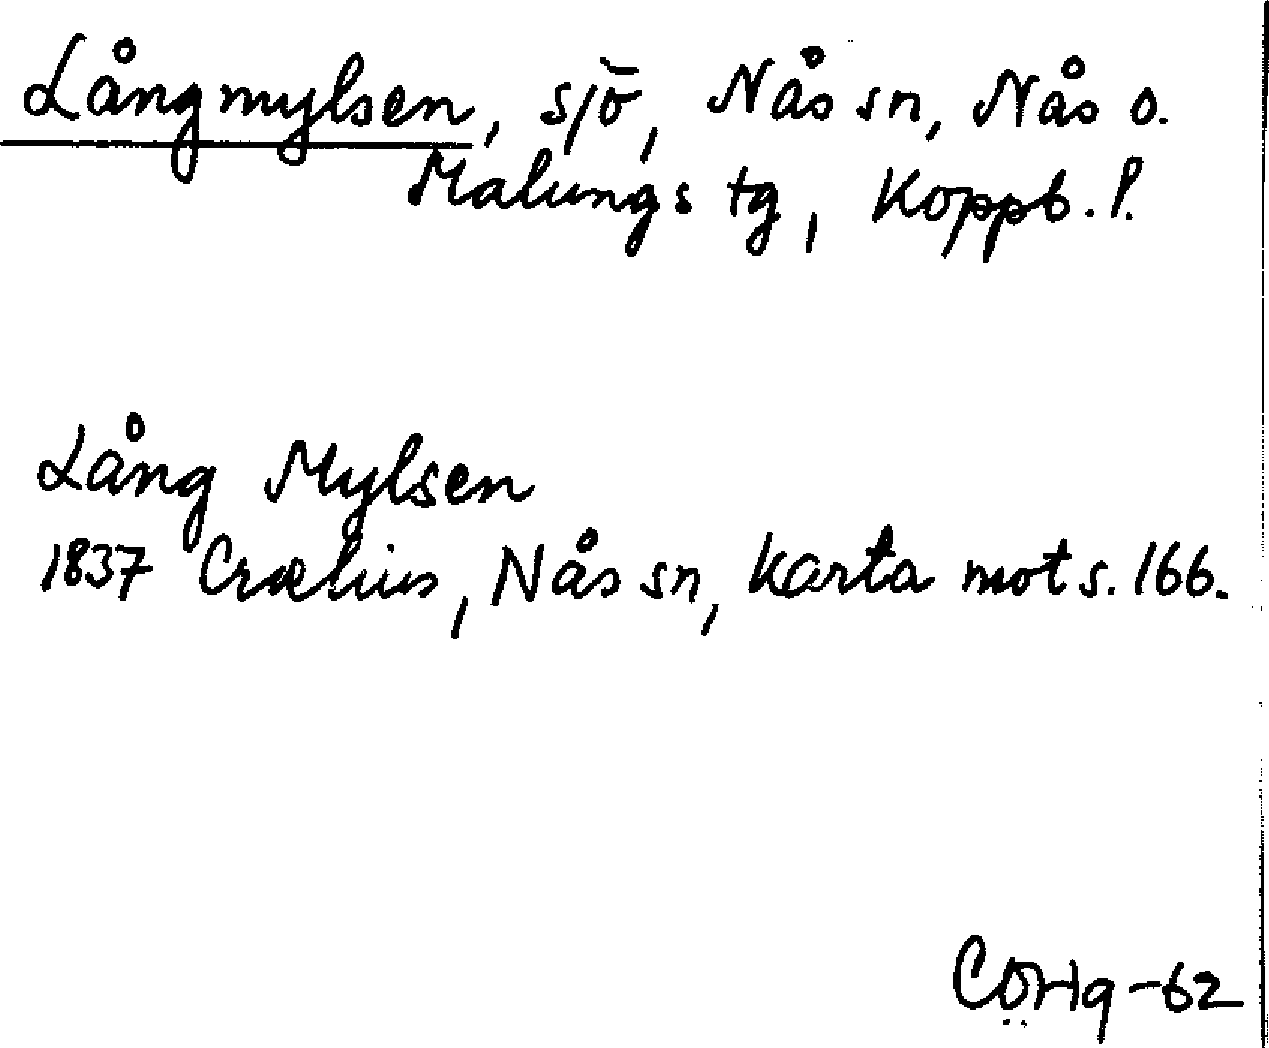 Långmylsen, sjö, Nås sn, Nås o.
Malungs tg, Koppb. l.
Lång Mylsen
1837 Crælius, Nås sn, Karta mot s. 166.
-62